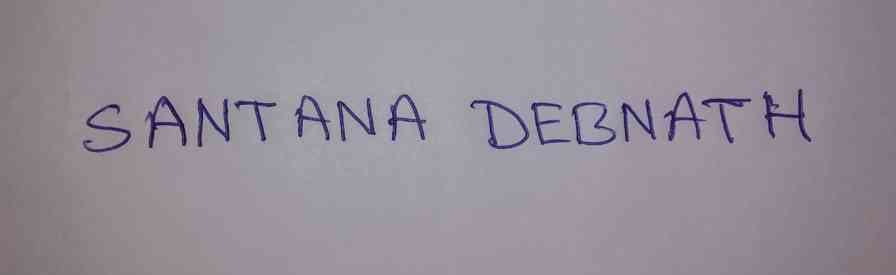 SANTANA DEBNATH